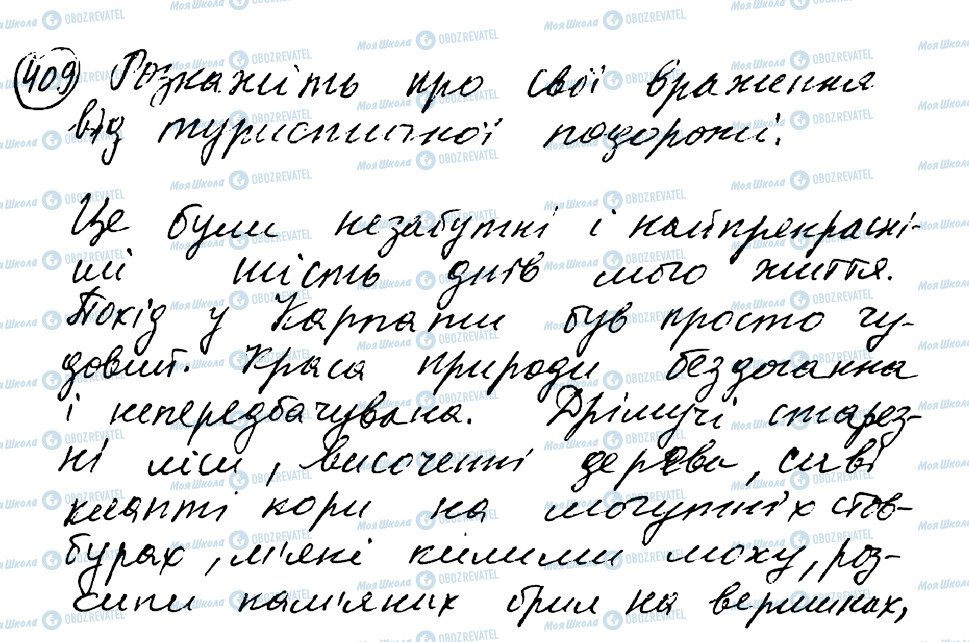 409 Розкажіть про свої враження
від туристичної подорожі.
Це були незабутні і найпрекрасні-
ші шість днів мого життя.
Похід у Карпати був просто чу-
довий. Краса природи бездоганна
і непередбачувана. Дрімучі старез-
ні ліси, височенні дерева, сиві
клапті кори на могутніх стов-
бурах, м'які килими моху, роз-
сипи кам'яних брил на вершинах,